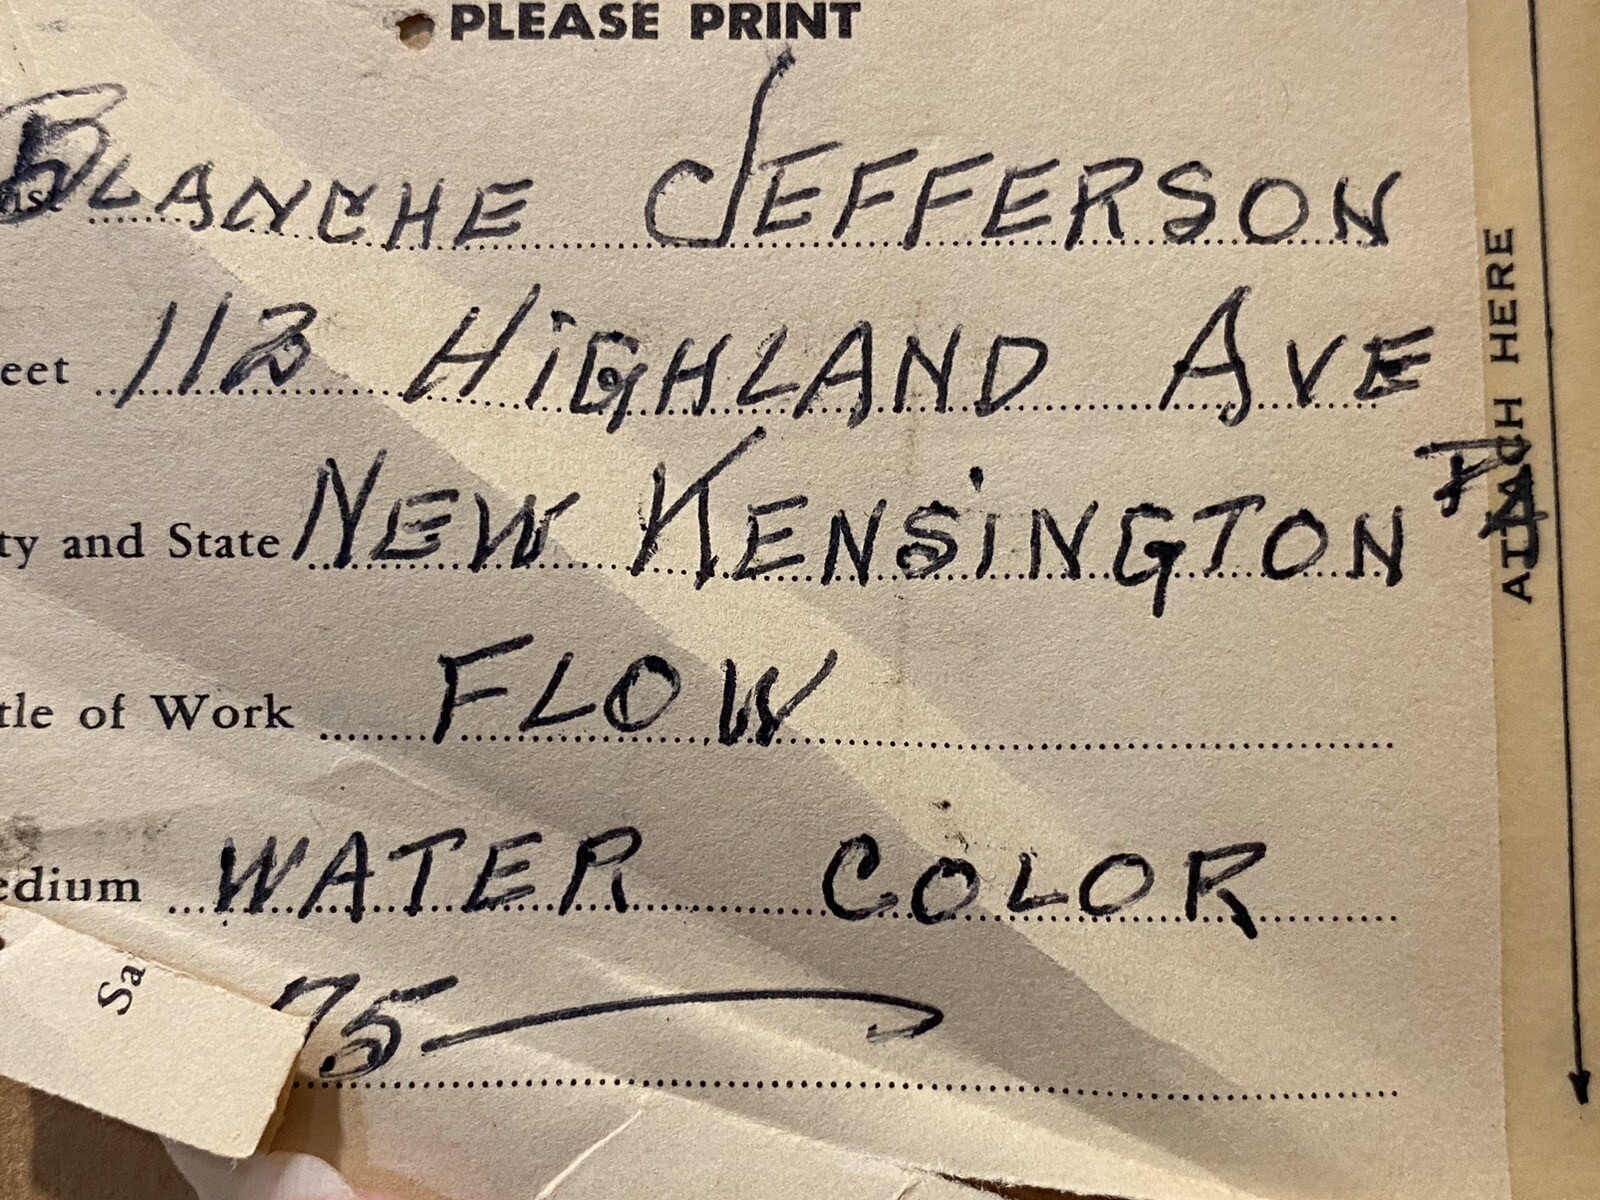 PLEASE PRINT
ist BLANCHE JEFFERSON
eet 112 HiGHLAND AVE
ty and State NEW KENSiNGTON PA
tle of Work FLOW
edium WATER COLOR
Sa 75
ATTACH HERE